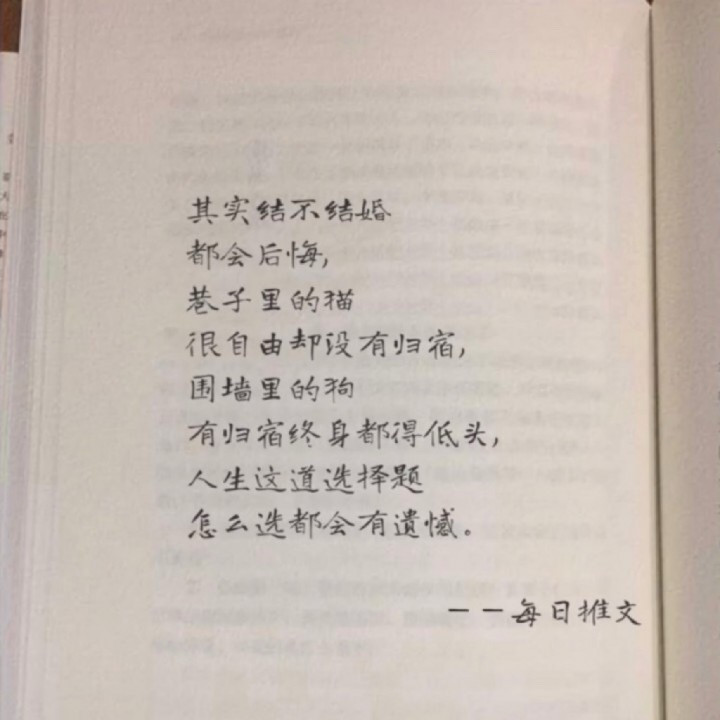 其实结不结婚
都会后悔,
巷子里的猫
很自由却没有归宿,
围墙里的狗
有归宿终身都得低头,
人生这道选择题
怎么选都会有遗憾。
——每日推文